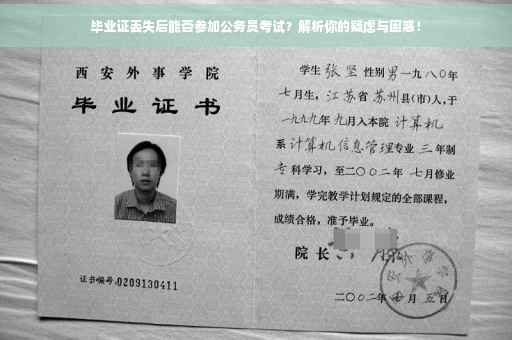 毕业证丢失后能否参加公务员考试？解析你的疑虑与困惑！
西安外事学院
毕业证书
证书编号:0209130411
学生 张坚 性别 男 一九八〇年
七月生，江苏省 苏州县(市)人，于
一九九九年 九月入本院 计算机
系 计算机信息管理专业 三 年制
专 科学习，至二〇〇二年 七月修业
期满，学完教学计划规定的全部课程，
成绩合格，准予毕业。
院长
二〇〇二年 七 月 五 日